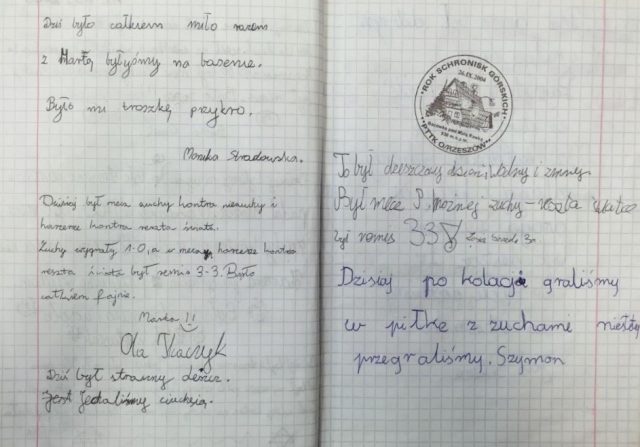 Dziś było całkiem miło razem
z Martą byłyśmy na basenie.
Było mi troszkę przykro.
Monika Stradowska.
Dzisiaj był mecz zuchy kontra niezuchy i
harcerze kontra reszta świata.
Zuchy wygrały 1-0, a w meczu harcerze kontra
reszta świata był remis 3-3. Było
całkiem fajnie.
Marka !!
Ola Tkaczyk
Dziś był straszny deszcz.
jest
ROK SCHRONISK GÓRSKICH
26.IX.2004
PTTK O/RZESZÓW
To był deszczowy dzień, i zimny.
Był mecz P. nożnej zuchy - reszta świata
był remis 33
Dzisiaj po kolacji graliśmy
w piłkę z zuchami niestety
przegraliśmy. Szymon